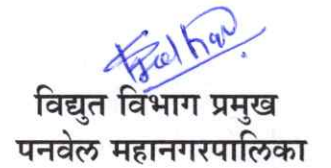 विद्युत विभाग प्रमुख
पनवेल महानगरपालिका